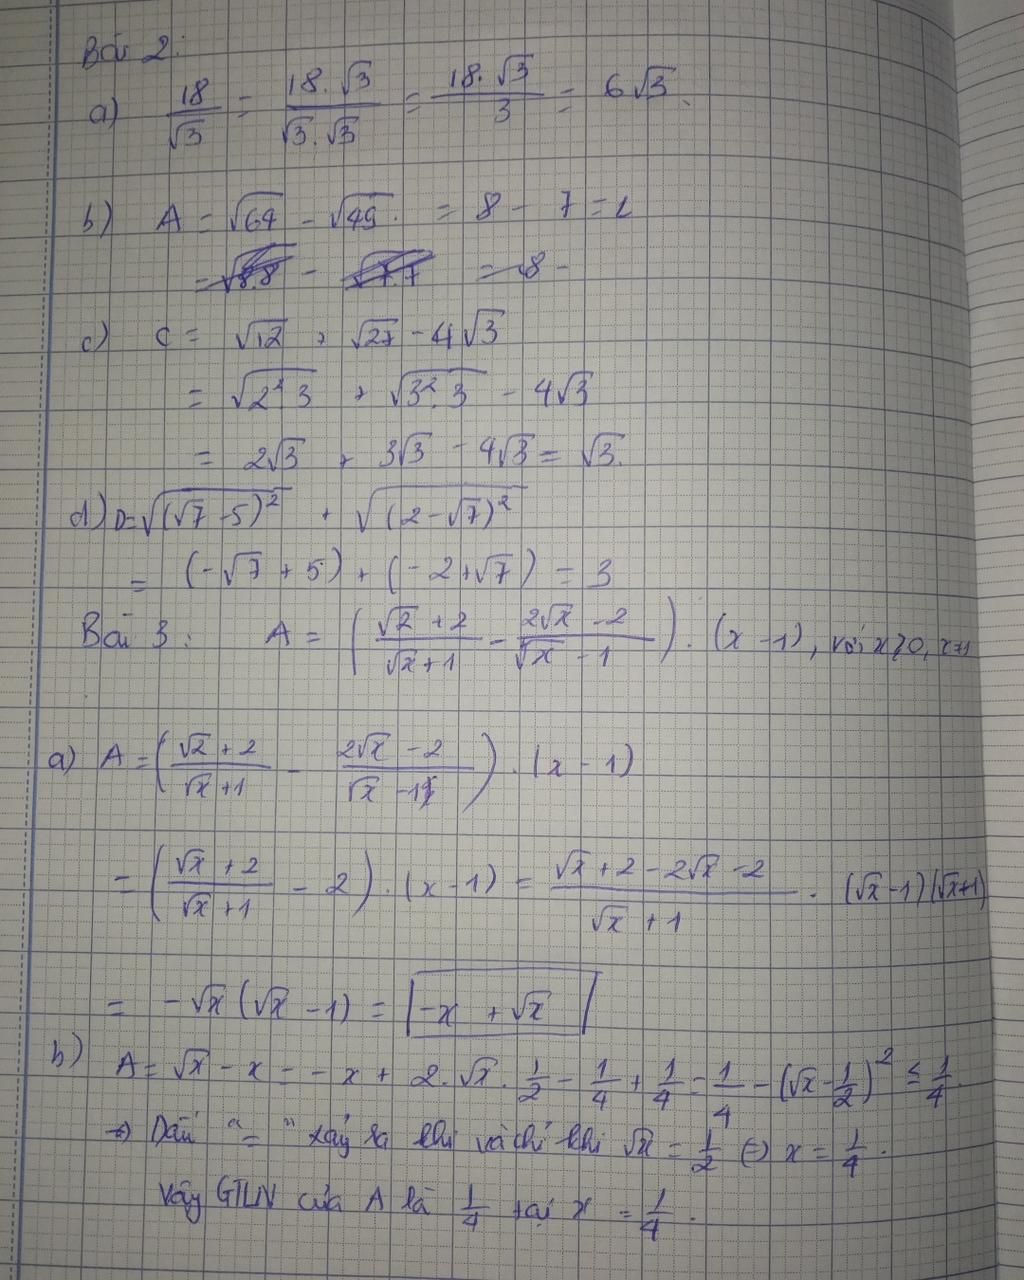 Bài 2:
a) 18/√3 = (18.√3)/(√3.√3) = (18.√3)/3 = 6√3.
b) A = √64 - √49. = 8 - 7 = 1
= √8.8 - √7.7 = 8 -
c) C = √12 + √27 - 4√3
= √(2².3) + √(3².3) - 4√3
= 2√3 + 3√3 - 4√3 = √3.
d) D = √((√7 - 5)²) + √((2 - √7)²)
= (-√7 + 5) + (-2 + √7) = 3
Bài 3: A = ((√2 + 2)/(√x + 1) - (2√x - 2)/(√x - 1)) . (x - 1), với x ≥ 0, x ≠ 1
a) A = ((√2 + 2)/(√x + 1) - (2√x - 2)/(√x - 1)) . (x - 1)
= ((√x + 2)/(√x + 1) - 2) . (x - 1) = (√x + 2 - 2√x - 2)/(√x + 1) . (√x - 1)(√x + 1)
= -√x (√x - 1) = -x + √x
b) A = √x - x = -x + 2.√x.1/2 - 1/4 + 1/4 = 1/4 - (√x - 1/2)² ≤ 1/4.
=> Dấu "=" xảy ra khi và chỉ khi √x = 1/2 (=) x = 1/4.
Vậy GTLN của A là 1/4 tại x = 1/4.